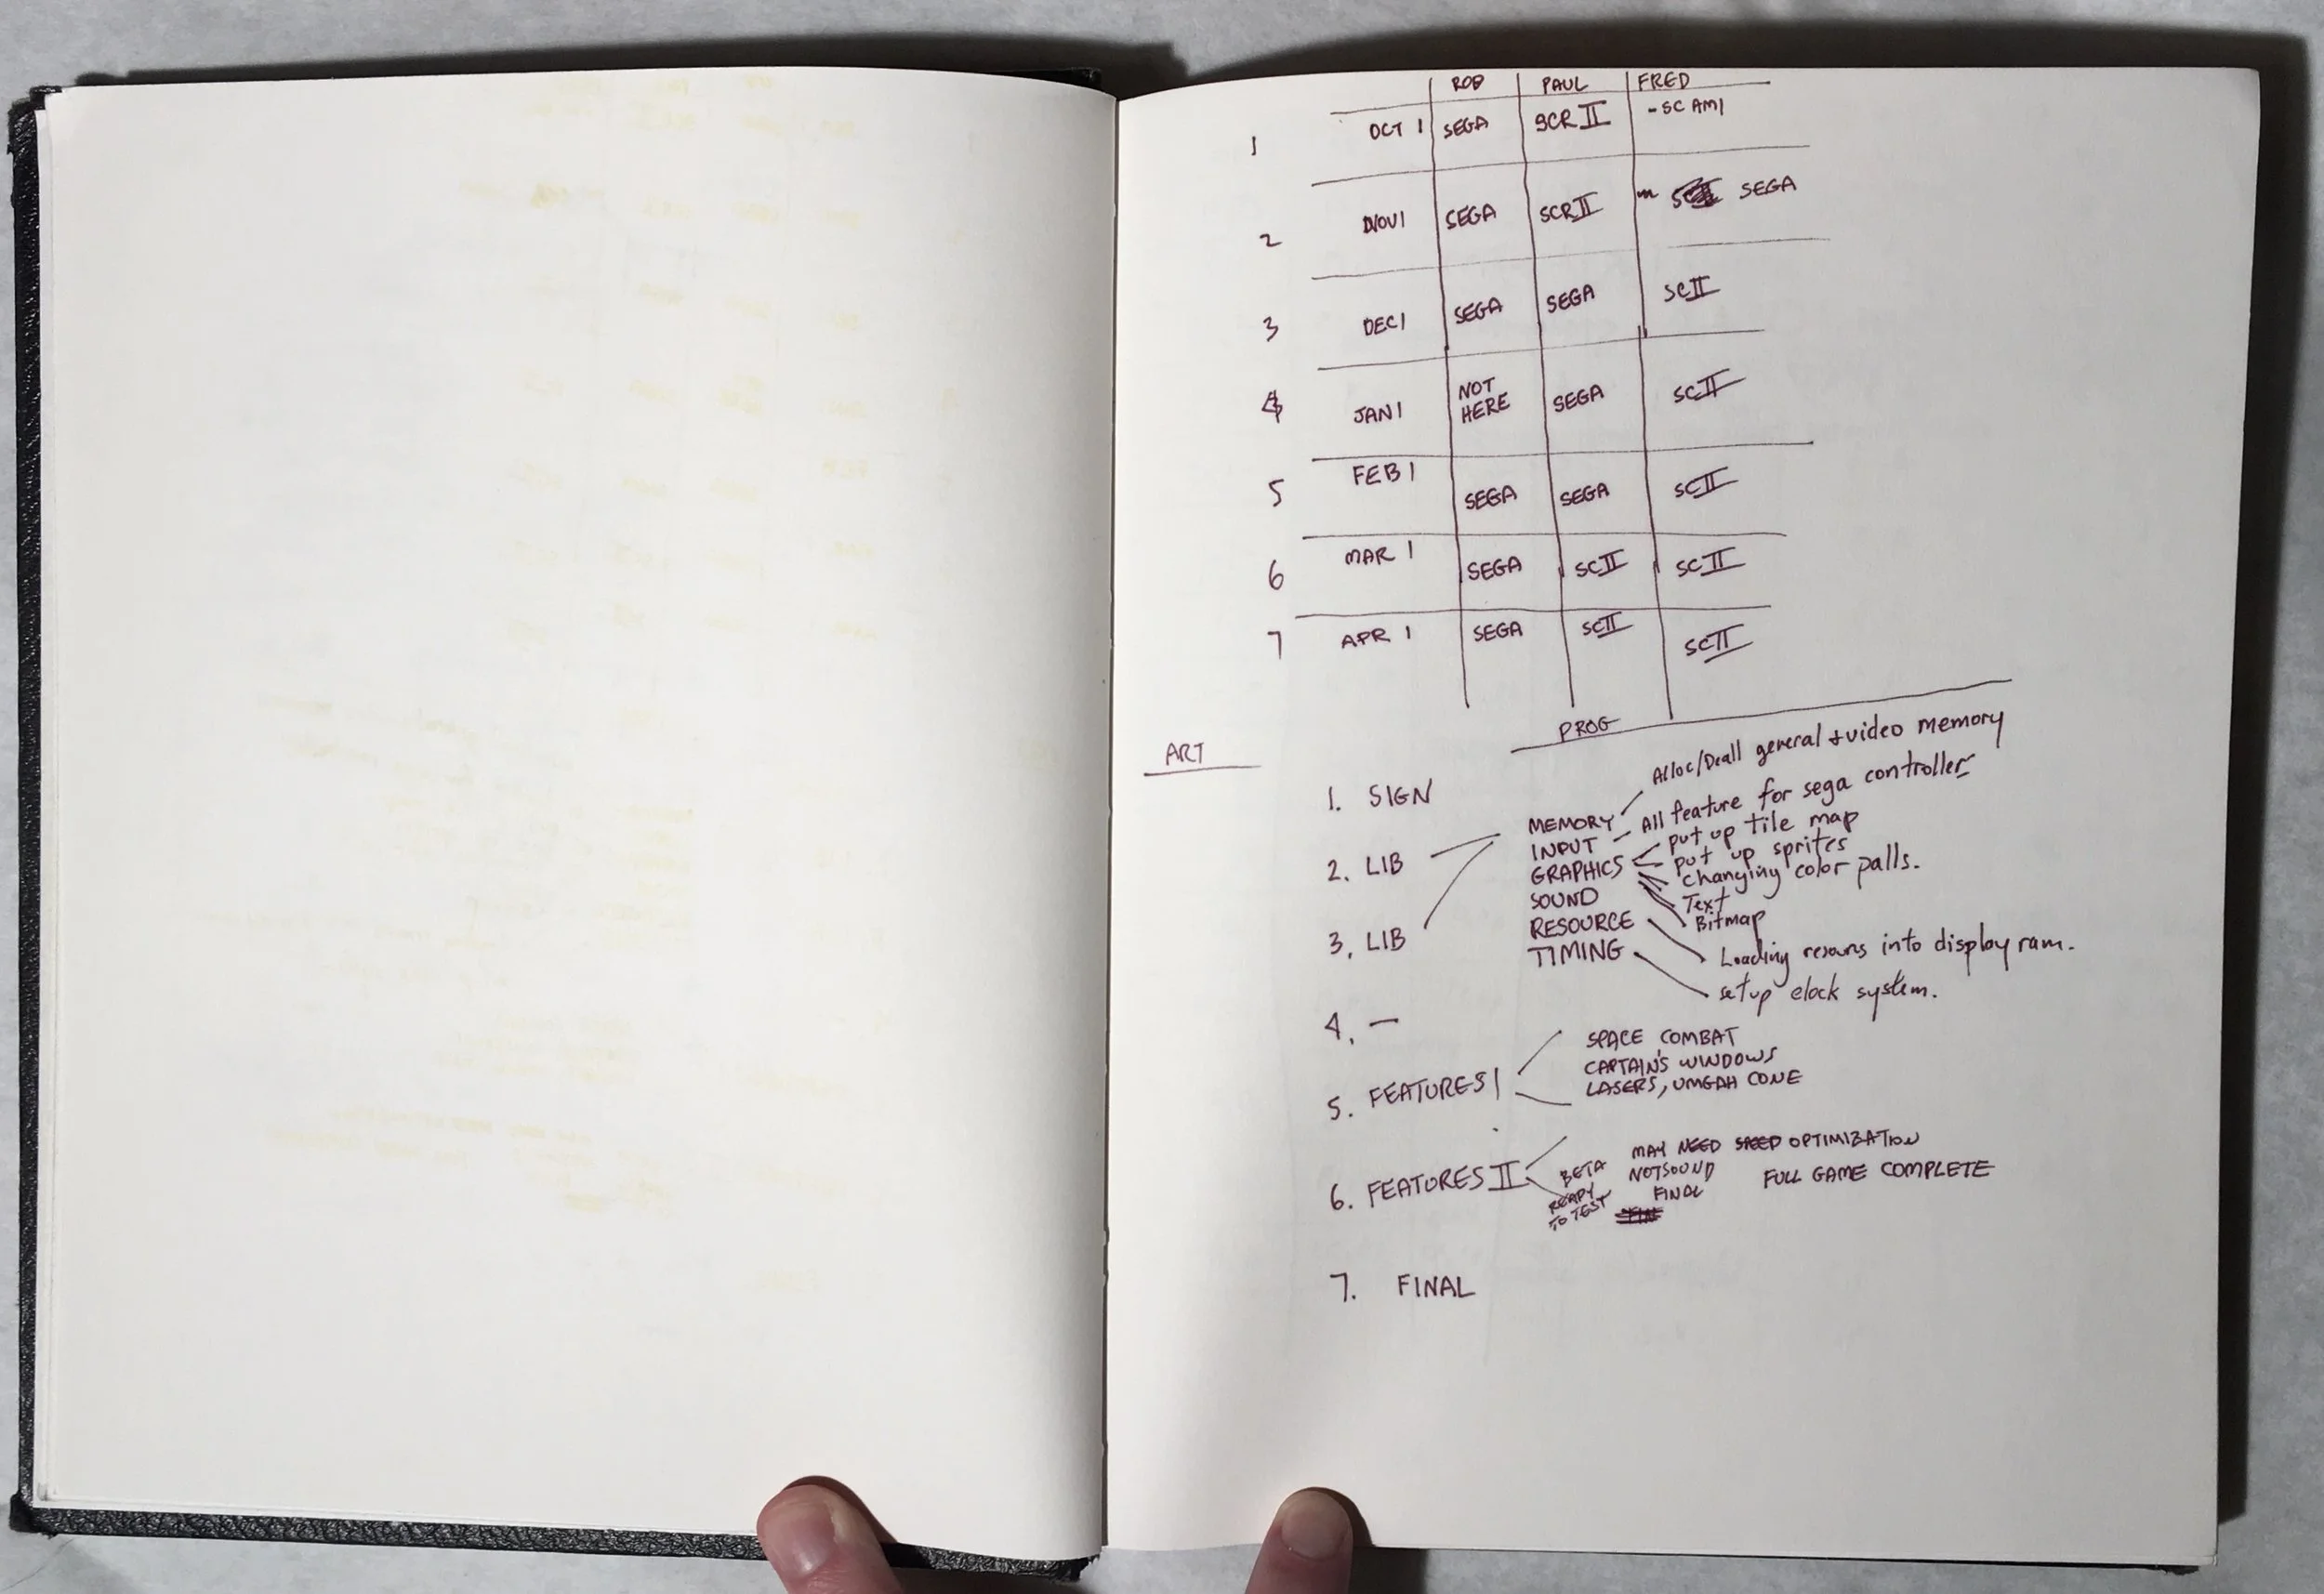 ROB PAUL FRED
1 OCT 1 SEGA SCR II - SC AMI
2 NOV 1 SEGA SCR II SEGA
3 DEC 1 SEGA SEGA SC II
4 JAN 1 NOT HERE SEGA SC II
5 FEB 1 SEGA SEGA SC II
6 MAR 1 SEGA SC II SC II
7 APR 1 SEGA SC II SC II
ART
PROG
1. SIGN
2. LIB
3. LIB
MEMORY Alloc/Deall general + video memory
INPUT All feature for sega controller
GRAPHICS put up tile map
put up sprites
changing color palls.
Text
Bitmap
SOUND
RESOURCE Loading into display ram.
TIMING setup clock system.
4. —
5. FEATURES I
SPACE COMBAT
CAPTAIN'S WINDOWS
LASERS, UMGAH CONE
6. FEATURES II
BETA
READY
TO TEST
MAY NEED SPEED OPTIMIZATION
NOT SOUND
FINAL
FULL GAME COMPLETE
7. FINAL